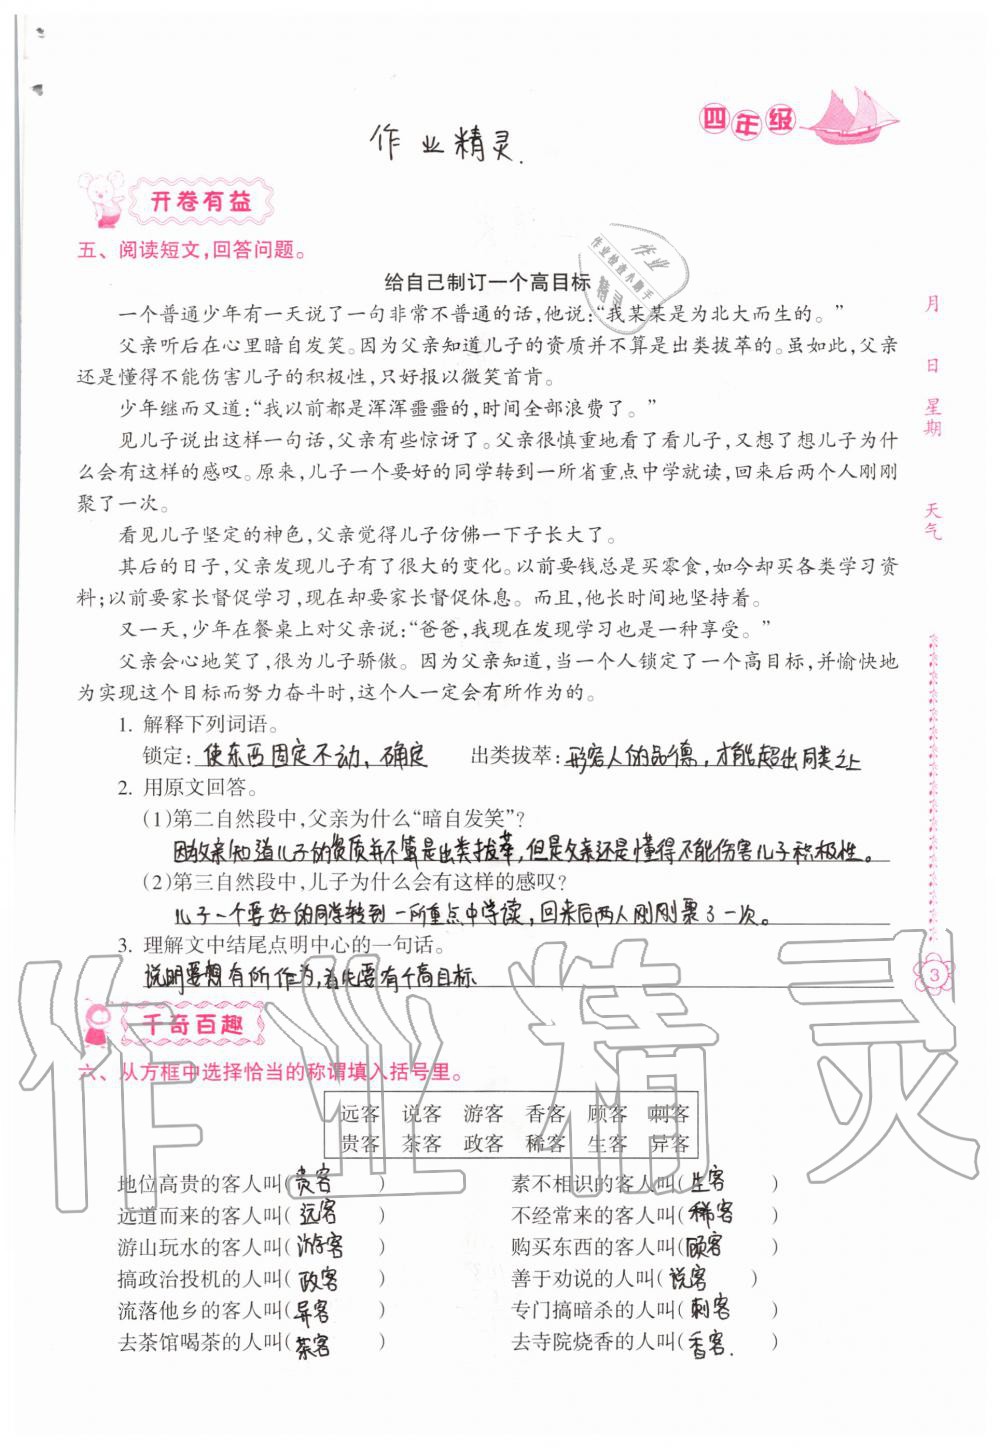 四年级
作业精灵.
开卷有益
作业
作业检查小助手
精灵
五、阅读短文,回答问题。
给自己制订一个高目标
一个普通少年有一天说了一句非常不普通的话,他说:“我某某是为北大而生的。”
父亲听后在心里暗自发笑。因为父亲知道儿子的资质并不算是出类拔萃的。虽如此,父亲
还是懂得不能伤害儿子的积极性,只好报以微笑首肯。
少年继而又道:“我以前都是浑浑噩噩的,时间全部浪费了。”
见儿子说出这样一句话,父亲有些惊讶了。父亲很慎重地看了看儿子,又想了想儿子为什
么会有这样的感叹。原来,儿子一个要好的同学转到一所省重点中学就读,回来后两个人刚刚
聚了一次。
看见儿子坚定的神色,父亲觉得儿子仿佛一下子长大了。
其后的日子,父亲发现儿子有了很大的变化。以前要钱总是买零食,如今却买各类学习资
料;以前要家长督促学习,现在却要家长督促休息。而且,他长时间地坚持着。
又一天,少年在餐桌上对父亲说:“爸爸,我现在发现学习也是一种享受。”
父亲会心地笑了,很为儿子骄傲。因为父亲知道,当一个人锁定了一个高目标,并愉快地
为实现这个目标而努力奋斗时,这个人一定会有所作为的。
1. 解释下列词语。
锁定:使东西固定不动、确定 出类拔萃:形容人的品德,才能超出同类之上
2. 用原文回答。
(1)第二自然段中,父亲为什么“暗自发笑”?
因父亲知道儿子的资质并不算是出类拔萃,但是父亲还是懂得不能伤害儿子积极性。
(2)第三自然段中,儿子为什么会有这样的感叹?
儿子一个要好的同学转到一所重点中学读,回来后两人刚刚聚了一次。
3. 理解文中结尾点明中心的一句话。
说明要想有所作为,首先要有个高目标
千奇百趣
六、从方框中选择恰当的称谓填入括号里。
远客 说客 游客 香客 顾客 刺客
贵客 茶客 政客 稀客 生客 异客
地位高贵的客人叫(贵客) 素不相识的客人叫(生客)
远道而来的客人叫(远客) 不经常来的客人叫(稀客)
游山玩水的客人叫(游客) 购买东西的客人叫(顾客)
搞政治投机的人叫(政客) 善于劝说的人叫(说客)
流落他乡的客人叫(异客) 专门搞暗杀的人叫(刺客)
去茶馆喝茶的人叫(茶客) 去寺院烧香的人叫(香客.)
月
日
星期
天气
3
作业精灵